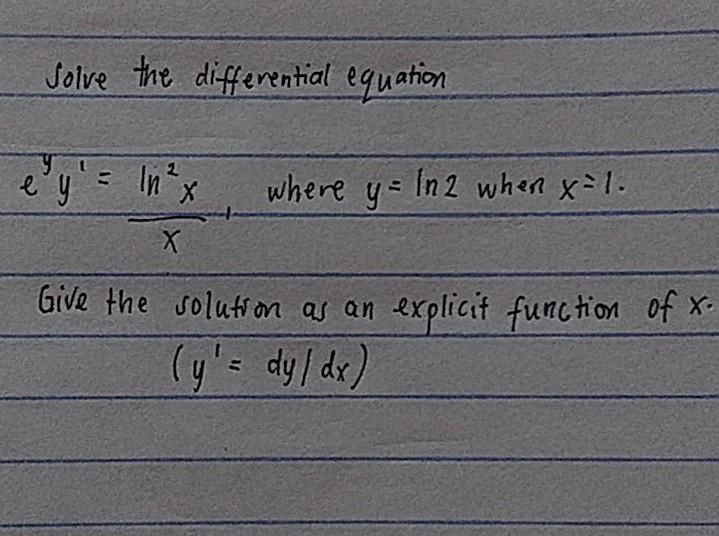 Solve the differential equation
e^y y' = ln²x / x, where y = ln2 when x=1.
Give the solution as an explicit function of x.
(y' = dy/dx)